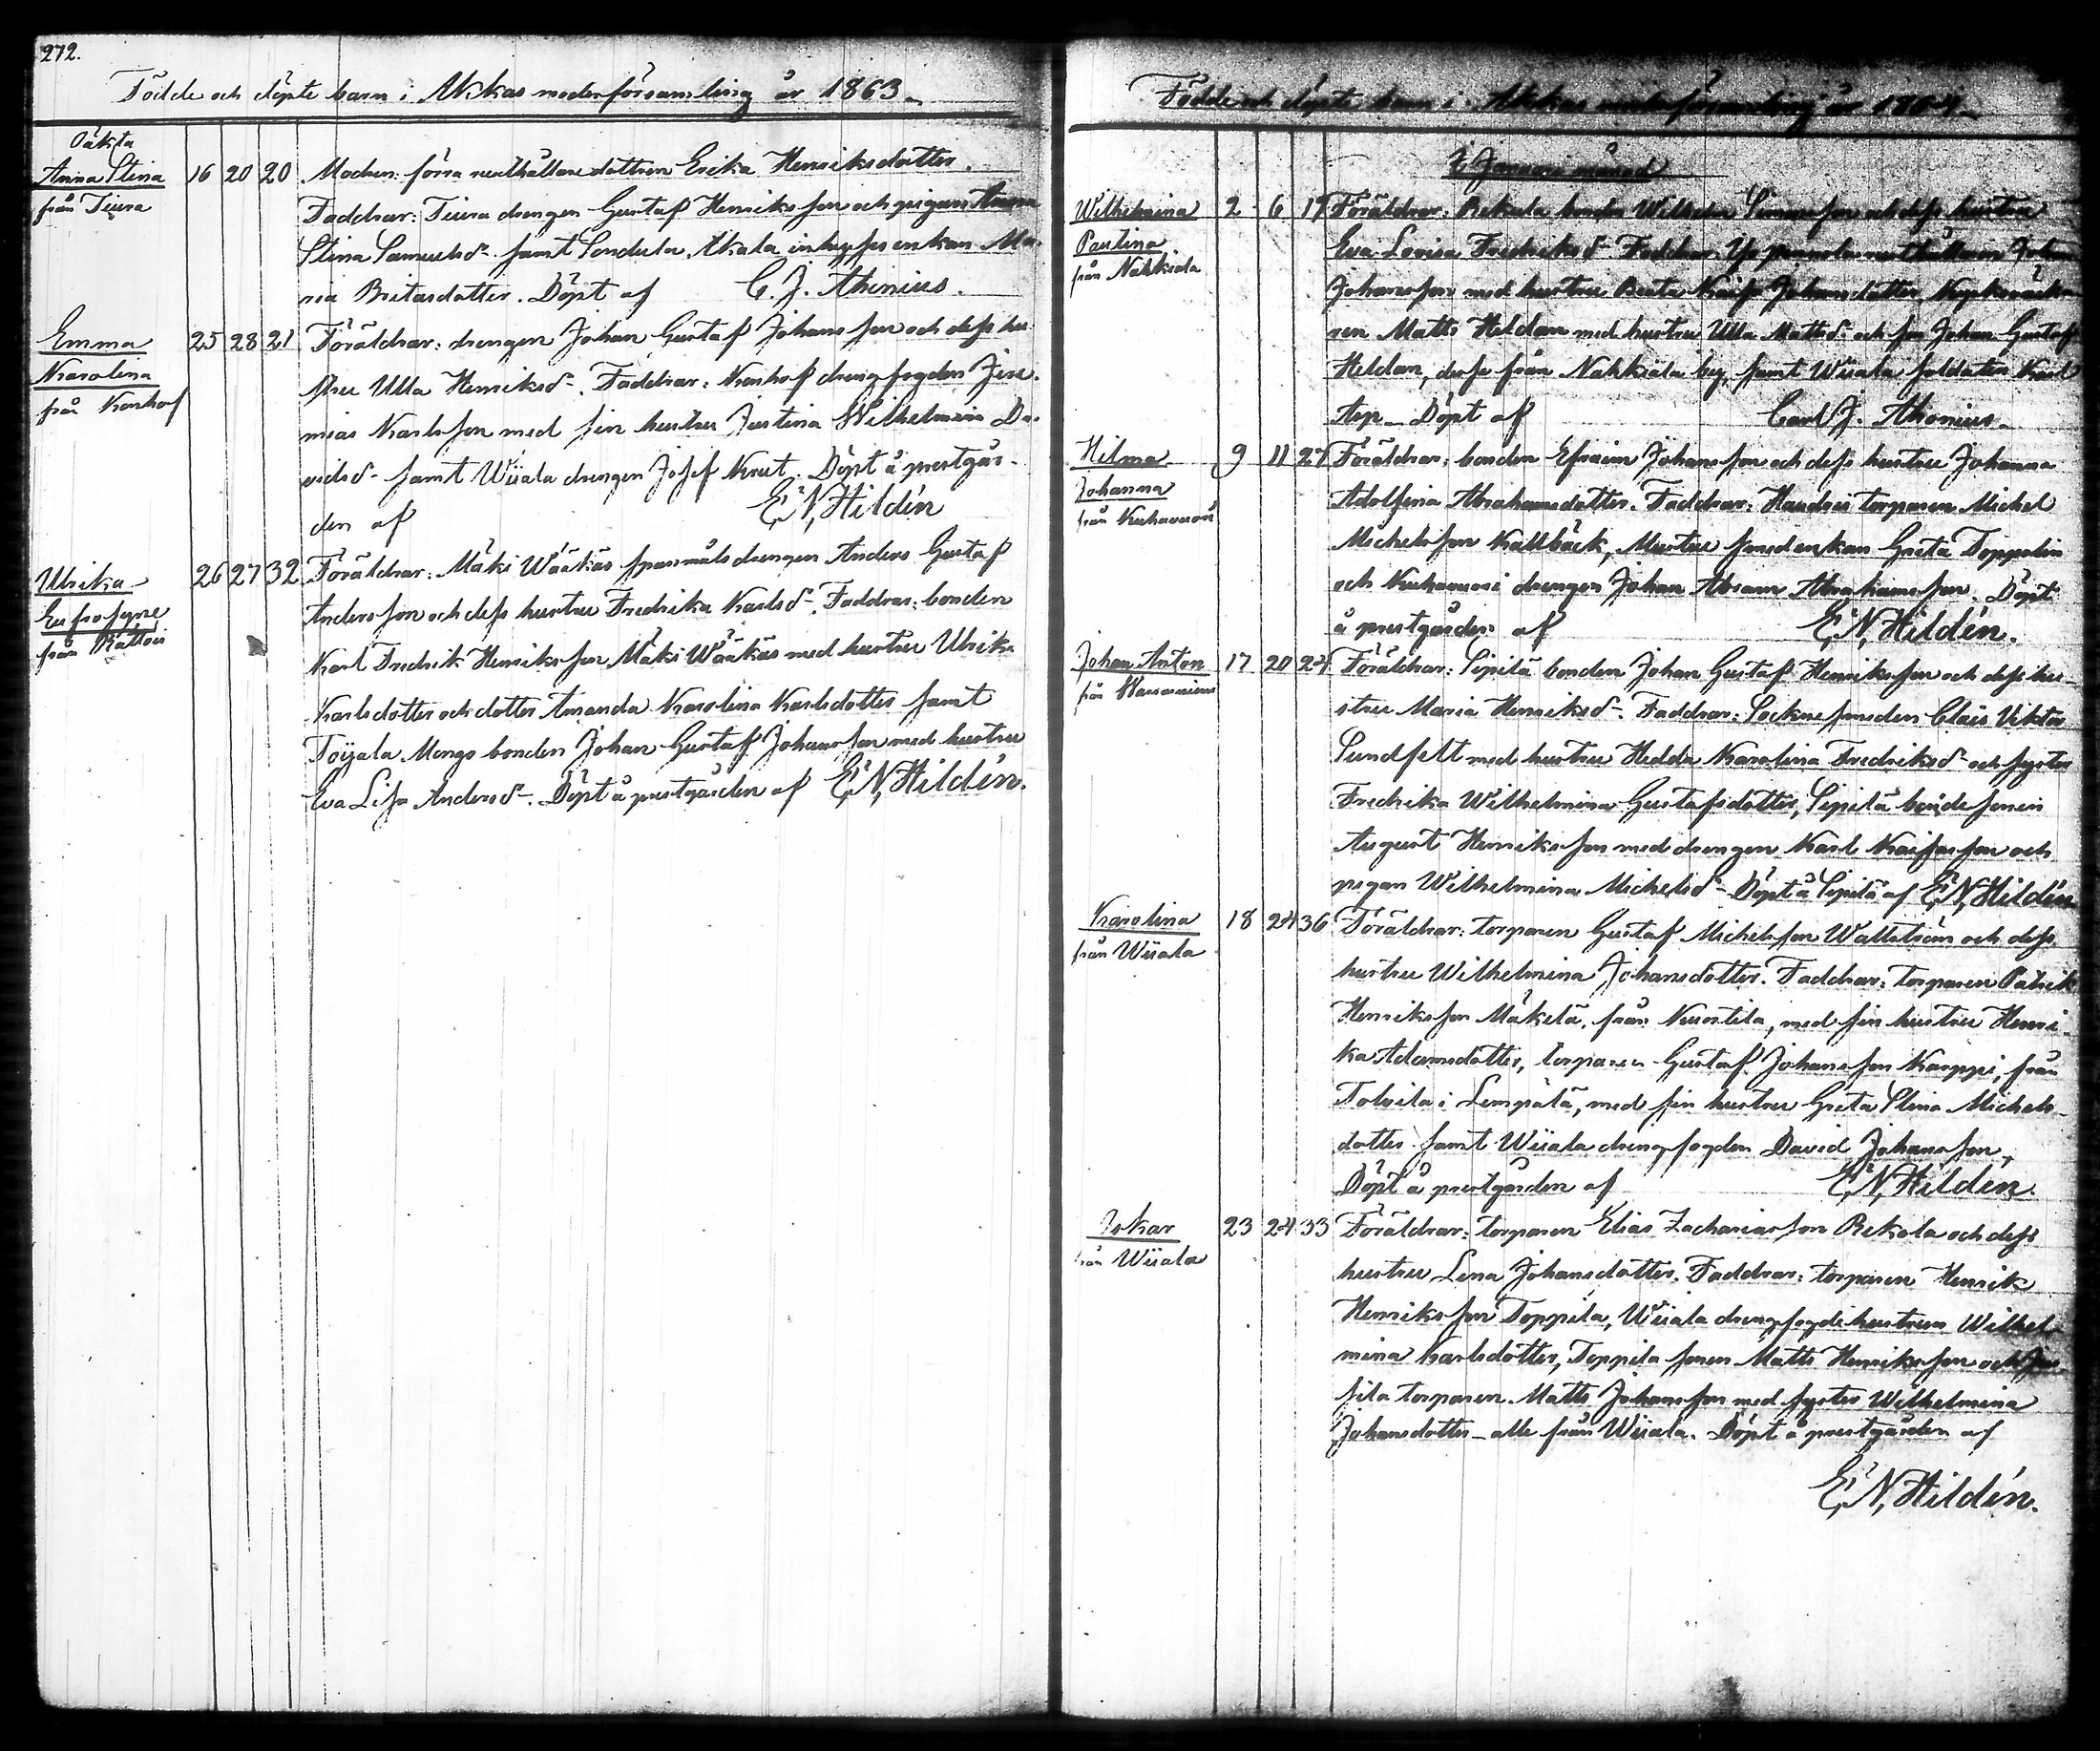 272.
Födde och döpte barn i Akkas moderförsamling år 1863.
Oäkta
Anna Stina 16 20 20 Modren: förra rusthållare dottren Erika Henriksdotter.
från Tiura Faddrar: Tiura drengen Gustaf Henriksson och pigan Anna
Stina Samuelsd. samt Sondula, Akala inhyses enkan Ma-
ria Britasdotter. Döpt af C. J. Ahonius.
Emma 25 28 21 Föräldrar: drengen Johan Gustaf Johansson och dess hu-
Karolina stru Ulla Henriksd. Faddrar: Konhof drengfogden Jere-
från Konhof mias Karlsson med sin hustru Justina Wilhelmina Da-
vidsd. samt Wiiala drengen Josef Knut. Döpt å prestgår-
den af E. N. Hildén
Ulrika 26 27 32 Föräldrar: Mäki Wääkäs spanmålsdrengen Anders Gustaf
Eufrosyne Andersson och dess hustru Fredrika Karlsd. Faddrar: bonden
från Rättöi Karl Fredrik Henriksson Mäki Wääkäs med hustru Ulrika
Karlsdotter och dotter Amanda Karolina Karlsdotter samt
Toijala Mongo bonden Johan Gustaf Johansson med hustru
Eva Lisa Andersd. Döpt å prestgården af E. N. Hildén.
Födde och döpte barn i Akkas moderförsamling år 1864.
I Januarii månad
Wilhelmina 2 6 19 Föräldrar: Rekola bonden Wilhelm Simonsson och dess hustru
Paulina Eva Lovisa Fredriksd. Faddrar: rusthållaren Johan
från Nahkiala Johansson med hustru Beata Kaisa Johansdotter,
ren Matts Heldan med hustru Ulla Mattsd. och son Johan Gustaf
Heldan, desse från Nahkiala by, samt Wiiala soldaten Karl
Asp. Döpt af Carl J. Ahonius.
Hilma 9 11 27 Föräldrar: bonden Efraim Johansson och dess hustru Johanna
Johanna Adolfina Abrahamsdotter. Faddrar: torparen Michel
från Kurhavuori Michelsson Kallbäck, smedenkan Greta Toppolin
och Kurhavuori drengen Johan Abram Abrahamsson. Döpt
å prestgården af E. N. Hildén.
Johan Anton 17 20 24 Föräldrar: Sipilä bonden Johan Gustaf Henriksson och dess hu-
från stru Maria Henriksd. Faddrar: Sockne smeden Claes Viktor
Sundfelt med hustru Hedda Karolina Fredriksd. och syster
Fredrika Wilhelmina Gustafsdotter, Sipilä bondesonen
August Henriksson med drengen Karl Kaisasson och
pigan Wilhelmina Michelsd. Döpt å Sipilä af E. N. Hildén
Karolina 18 24 36 Föräldrar: torparen Gustaf Michelsson Wallström och dess
från Wiiala hustru Wilhelmina Johansdotter. Faddrar: torparen Patrik
Henriksson Mäkelä, från Kuortila, med sin hustru Henri-
ka Adamsdotter, torparen Gustaf Johansson Karppi, från
Tolvila i Lempälä, med sin hustru Greta Stina Michels-
dotter samt Wiiala drengfogden David Johansson,
Döpt å prestgården af E. N. Hildén.
Oskar 23 24 33 Föräldrar: torparen Elias Zachariasson Rekola och dess
från Wiiala hustru Lena Johansdotter. Faddrar: torparen Henrik
Henriksson Toppila, Wiiala drengfogdehustrun Wilhel-
mina Carlsdotter, Toppila sonen Matts Henriksson och
sila torparen Matts Johansson med syster Wilhelmina
Johansdotter – alle från Wiiala. Döpt å prestgården af
E. N. Hildén.